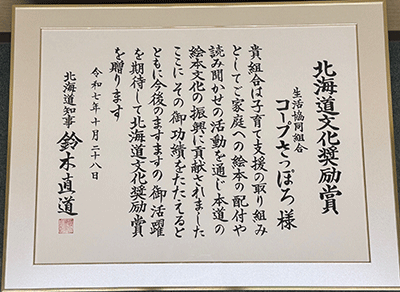 北海道文化奨励賞
生活協同組合
コープさっぽろ 様
貴組合は子育て支援の取り組み
としてご家庭への絵本の配付や
読み聞かせの活動を通じ本道の
絵本文化の振興に貢献されました
ここに その御功績をたたえると
ともに今後のますますの 御活躍
を期待して 北海道文化奨励賞
を贈ります
令和七年十月二十八日
北海道知事 鈴木直道